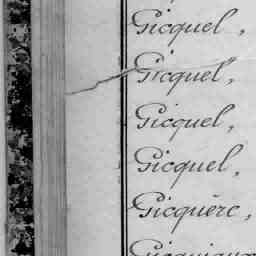 Gicquel,
Gicquel,
Gicquel,
Gicquel,
Gicquère,